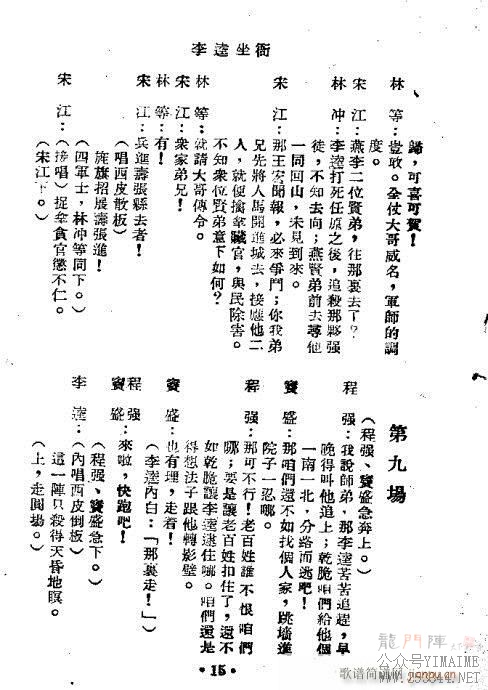 李逵坐衙
歸，可喜可賀！
林　等：豈敢。全仗大哥威名，軍師的調
度。
宋　江：燕李二位賢弟，往那裏去了？
林　冲：李逵打死任原之後，追殺那夥强
徒，不知去向；燕賢弟前去尋他
一同回山，未見到來。
宋　江：那王宏聞報，必來爭鬥；你我弟
兄先將人馬開進城去，接應他二
人，就便擒拿贜官，與民除害。
不知衆位賢弟意下如何？
林　等：就請大哥傳令。
宋　江：衆家弟兄！
林　等：有！
宋　江：兵進壽張縣去者！
（唱西皮散板）
旌旗招展壽張進！
（四軍士，林冲等同下。）
宋　江：（接唱）捉拿貪官懲不仁。
（宋江下。）
第九場
（程强、竇盛急奔上。）
程　强：我說師弟，那李逵苦苦追趕，早
晚得叫他追上；乾脆咱們給他個
一南一北，分路而逃吧！
竇　盛：那咱們還不如找個人家，跳墻進
院子一忍哪。
程　强：那可不行！老百姓誰不恨咱們
哪；要是讓老百姓扣住了，還不
如乾脆讓李逵逮住哪。咱們還是
得想法子跟他轉影壁。
竇　盛：也有理，走着！
（李逵內白：「那裏走！」）
程　强：
竇　盛：來啦，快跑吧！
（程强、竇盛急下。）
李　逵：（內唱西皮倒板）
這一陣只殺得天昏地暝。
（上，走圓場。）
·15·
龍門陣
公众号YIMAIME
歌谱简谱网